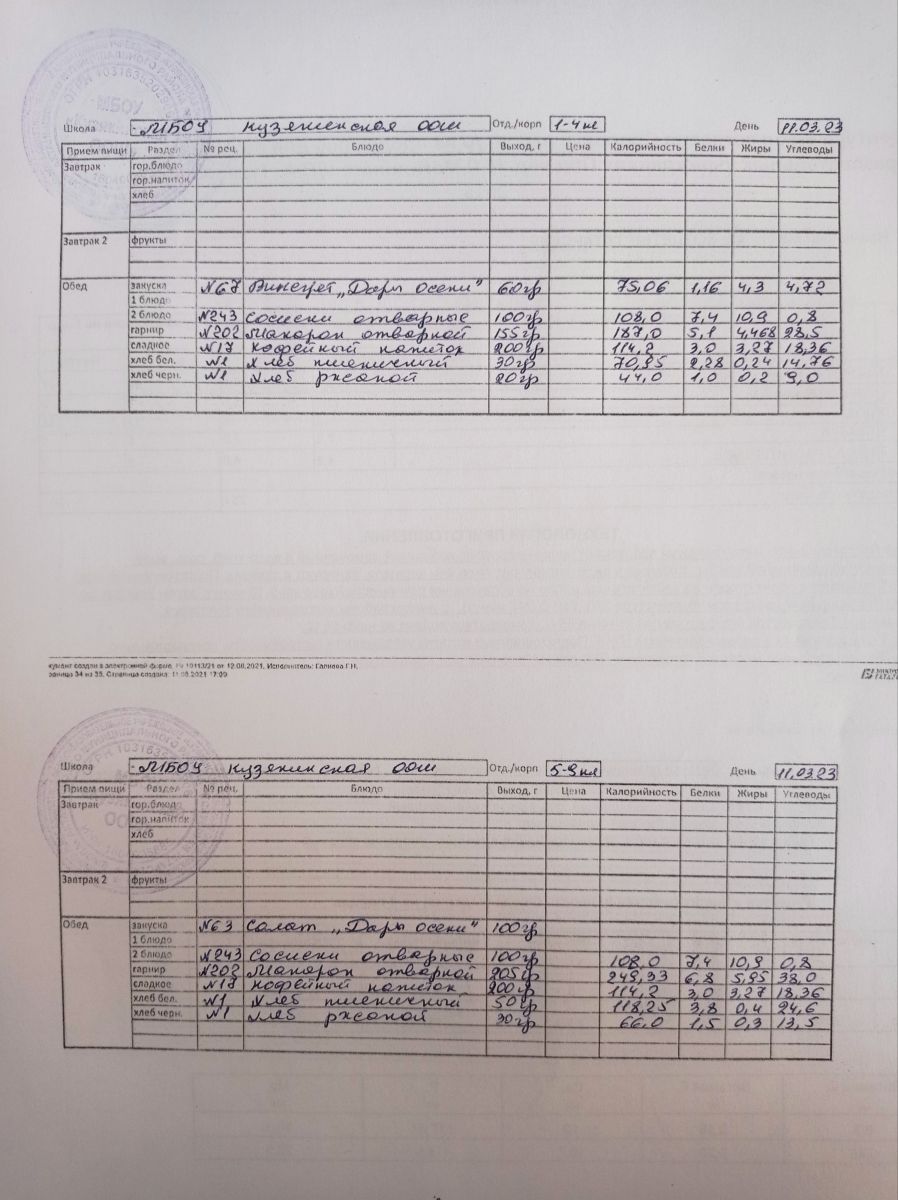 МБОУ
Школа МБОУ Кузякинская ООШ Отд./корп 1-4 кл День 11.03.23
Прием пищи Раздел № рец. Блюдо Выход, г Цена Калорийность Белки Жиры Углеводы
Завтрак гор.блюдо
гор.напиток
хлеб
Завтрак 2 фрукты
Обед закуска №67 Винегрет „Дары осени" 60гр 75,06 1,16 4,3 4,72
1 блюдо
2 блюдо №243 Сосиски отварные 100гр 108,0 7,4 10,9 0,8
гарнир №202 Макарон отварной 155гр 187,0 5,1 4,468 28,5
сладкое №17 Кофейный напиток 200гр 114,2 3,0 3,27 18,36
хлеб бел. №1 Хлеб пшеничный 30гр 70,95 2,28 0,24 14,76
хлеб черн. №1 Хлеб ржаной 20гр 44,0 1,0 0,2 9,0
ТЕХНОЛОГИЯ ПРИГОТОВЛЕНИЯ
кумент создан в электронной форме. № 10113/21 от 12.08.2021. Исполнитель: Галиева Г.Н.
раница 34 из 35. Страница создана: 11.08.2021 17:09
Школа МБОУ Кузякинская ООШ Отд./корп 5-9 кл День 11.03.23
Прием пищи Раздел № рец. Блюдо Выход, г Цена Калорийность Белки Жиры Углеводы
Завтрак гор.блюдо
гор.напиток
хлеб
Завтрак 2 фрукты
Обед закуска №63 Салат „Дары осени" 100гр
1 блюдо
2 блюдо №243 Сосиски отварные 100гр 108,0 7,4 10,9 0,8
гарнир №202 Макарон отварной 205гр 249,33 6,8 5,95 38,0
сладкое №17 Кофейный напиток 200гр 114,2 3,0 3,27 18,36
хлеб бел. №1 Хлеб пшеничный 50гр 118,25 3,8 0,4 24,6
хлеб черн. №1 Хлеб ржаной 30гр 66,0 1,5 0,3 13,5